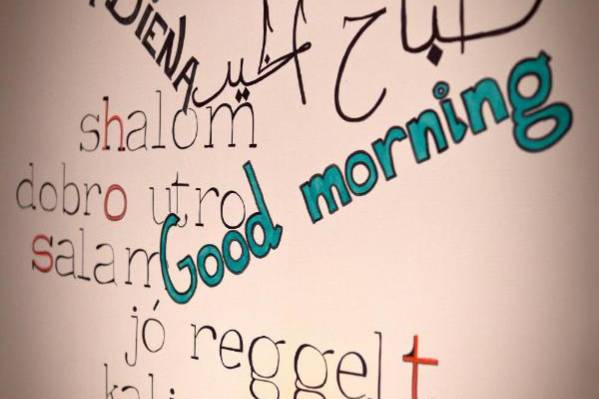 DIENA
صباح الخير
shalom
dobro utro
Good morning
salam
jó reggelt